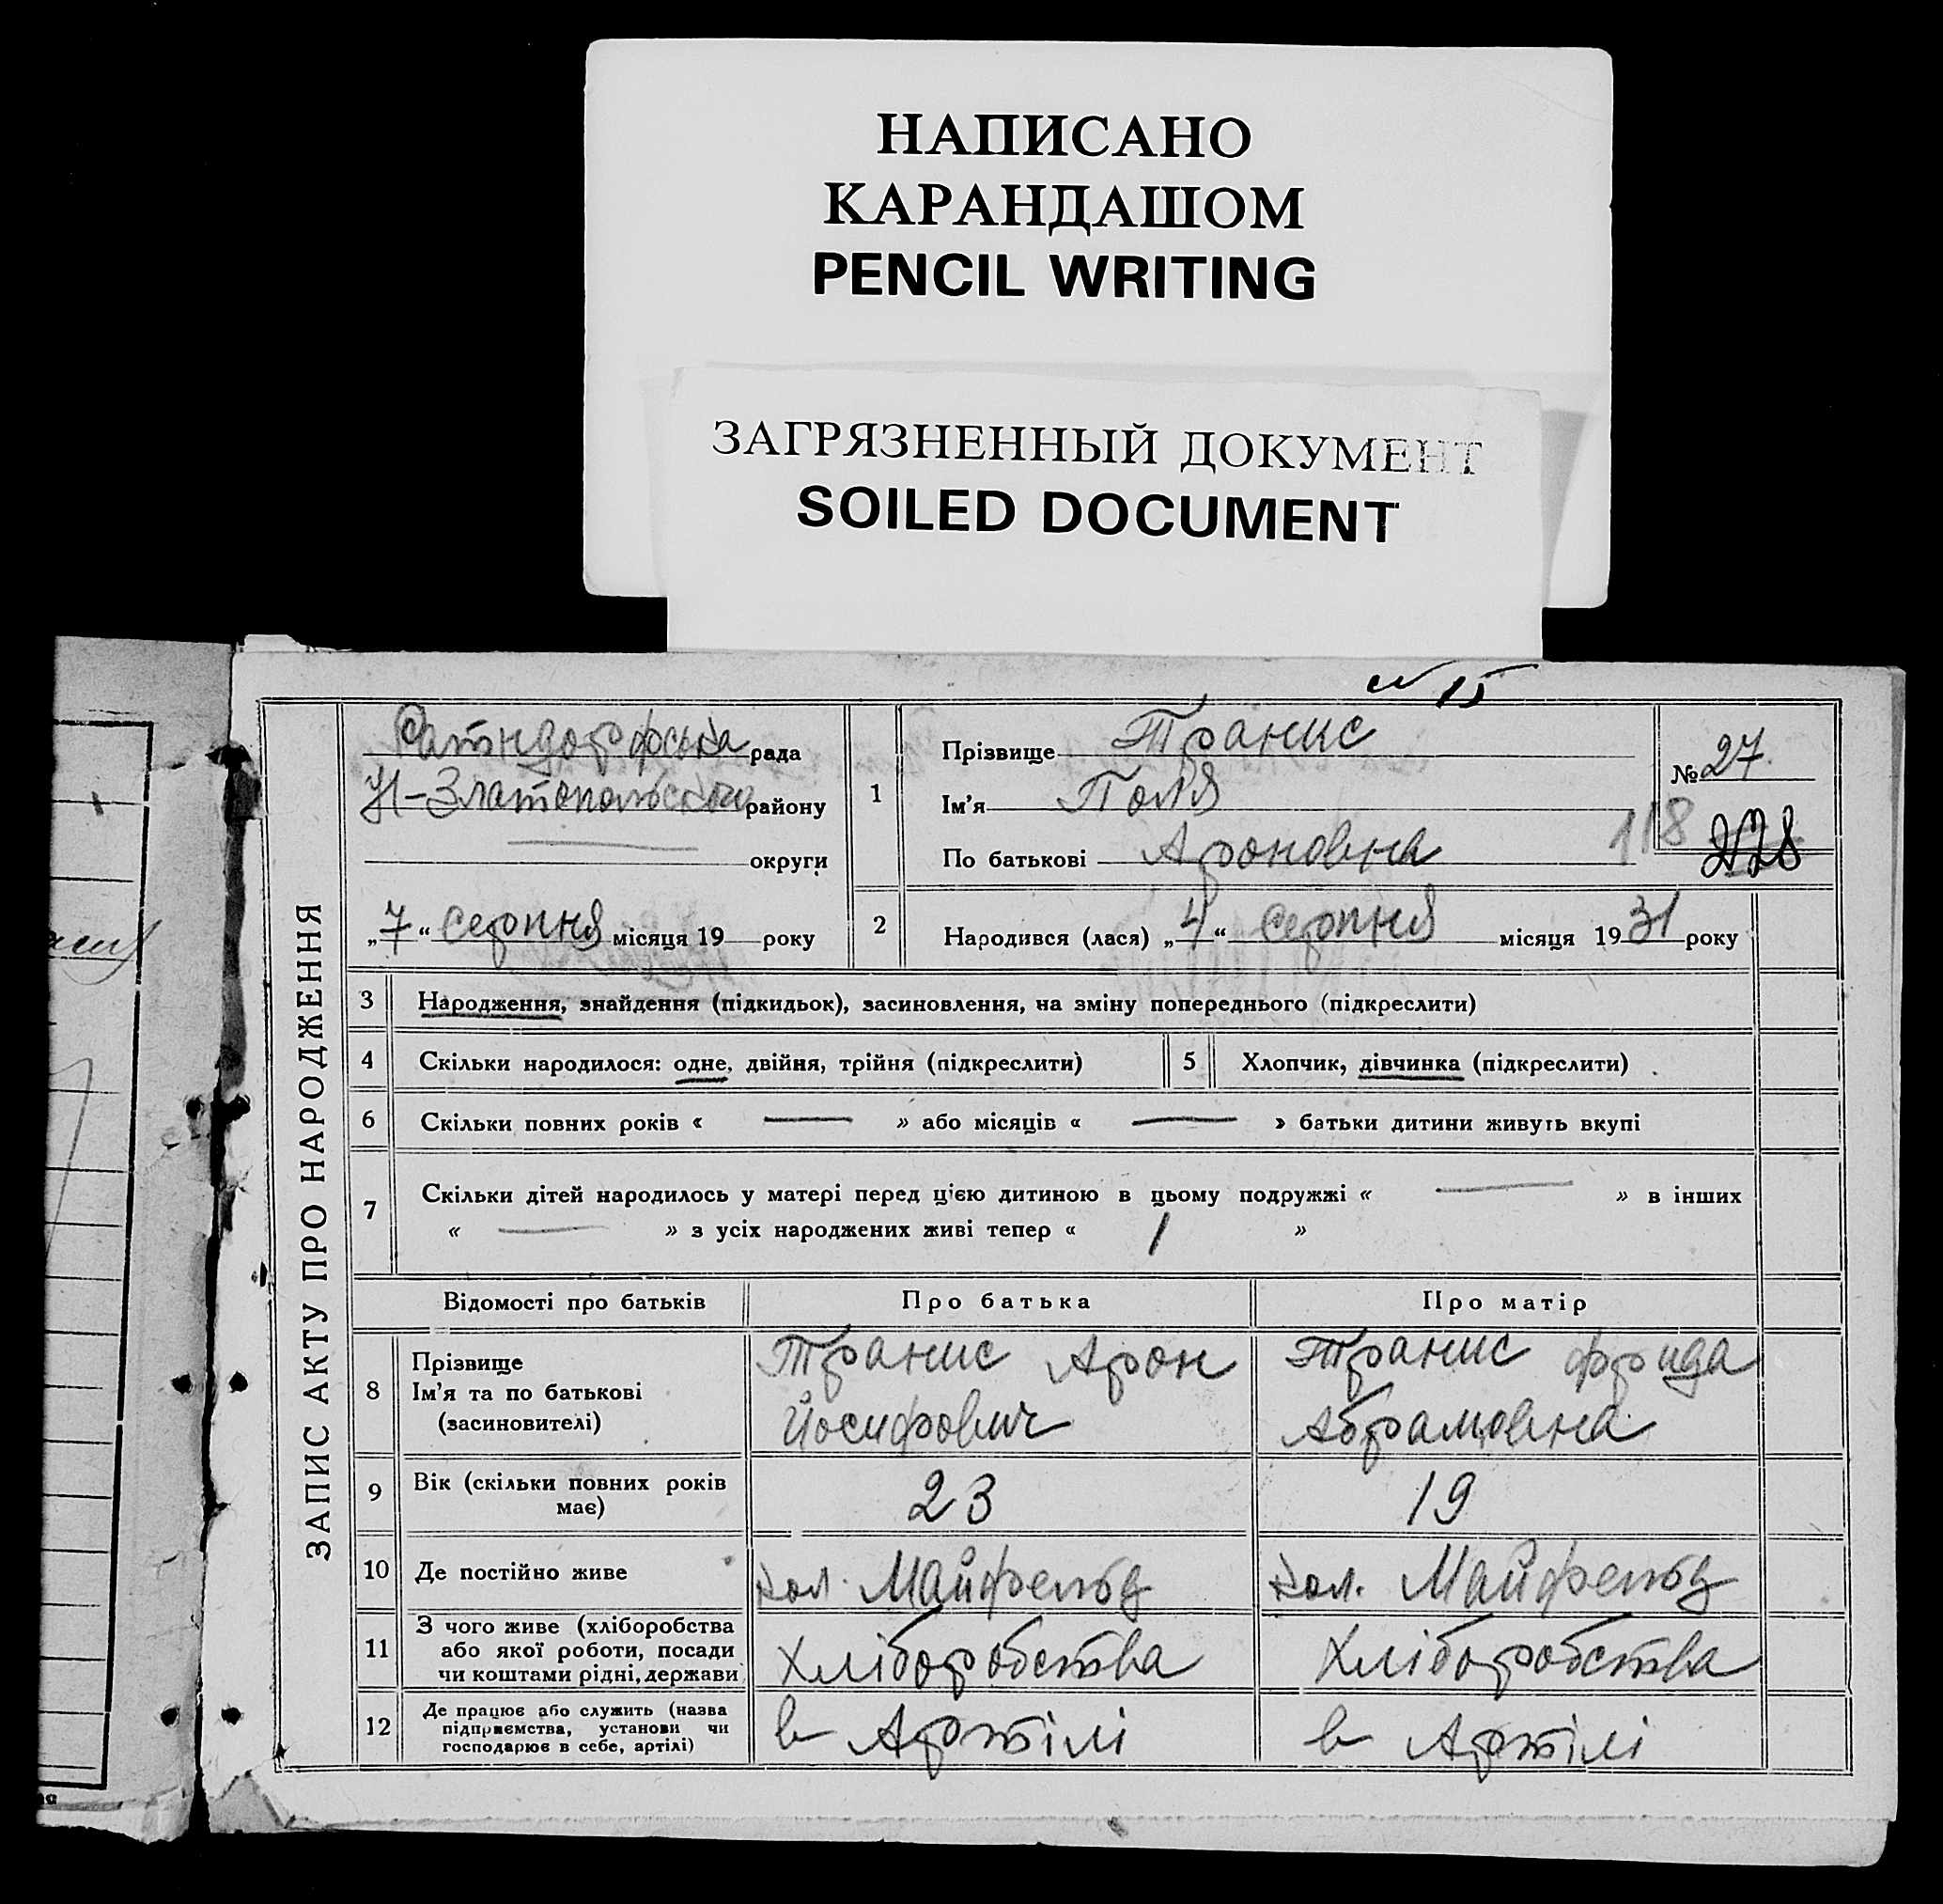 НАПИСАНО
КАРАНДАШОМ
PENCIL WRITING
ЗАГРЯЗНЕННЫЙ ДОКУМЕНТ
SOILED DOCUMENT
№ 15
ЗАПИС АКТУ ПРО НАРОДЖЕННЯ
Ратндорфська рада
Н-Златопольського району
округи
„7“ серпня місяця 19 року
1
Прізвище Транис
Ім'я Поля
По батькові Ароновна
№ 27
118 228
2
Народився (лася) „4“ серпня місяця 1931 року
3 Народження, знайдення (підкидьок), засиновлення, на зміну попереднього (підкреслити)
4 Скільки народилося: одне, двійня, трійня (підкреслити) 5 Хлопчик, дівчинка (підкреслити)
6 Скільки повних років « — » або місяців « — » батьки дитини живуть вкупі
7 Скільки дітей народилось у матері перед цією дитиною в цьому подружжі « — » в інших
« — » з усіх народжених живі тепер « 1 »
Відомості про батьків Про батька Про матір
8 Прізвище Ім'я та по батькові (засиновителі)
Транис Арон
Йосифович
Транис Фрида
Абрамовна
9 Вік (скільки повних років має) 23 19
10 Де постійно живе кол. Майфельд кол. Майфельд
11 З чого живе (хліборобства
або якої роботи, посади
чи коштами рідні, держави
Хліборобства Хліборобства
12 Де працює або служить (назва
підприємства, установи чи
господарює в себе, артілі)
в Артілі в Артілі